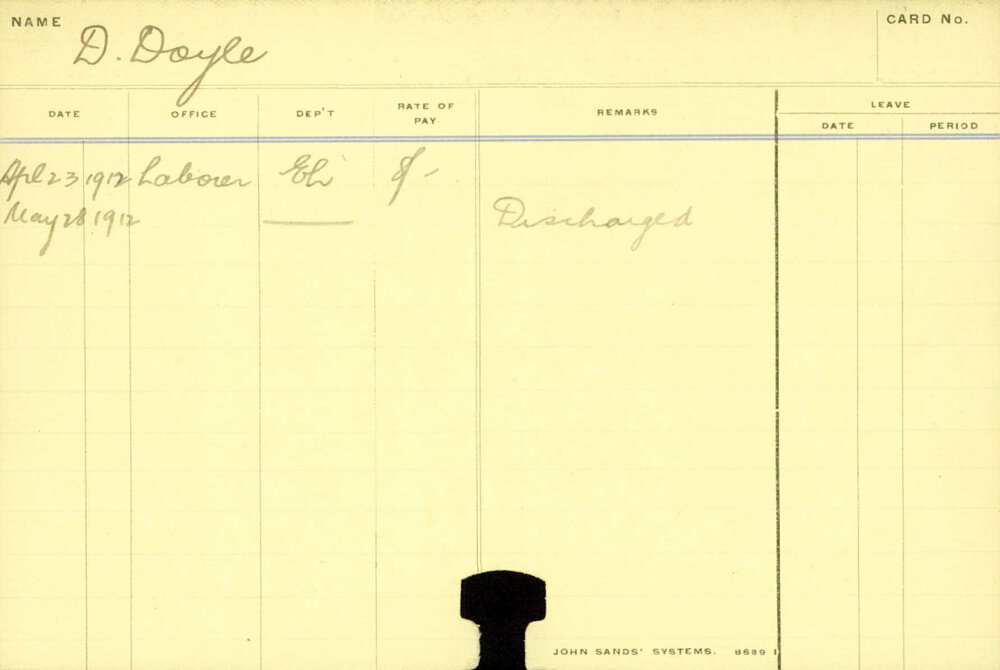 NAME D. Doyle CARD No.
DATE OFFICE DEP'T RATE OF PAY REMARKS LEAVE
DATE PERIOD
Apl 23 1912 Laborer 8/-
May 28 1912 Discharged
JOHN SANDS' SYSTEMS. 8689